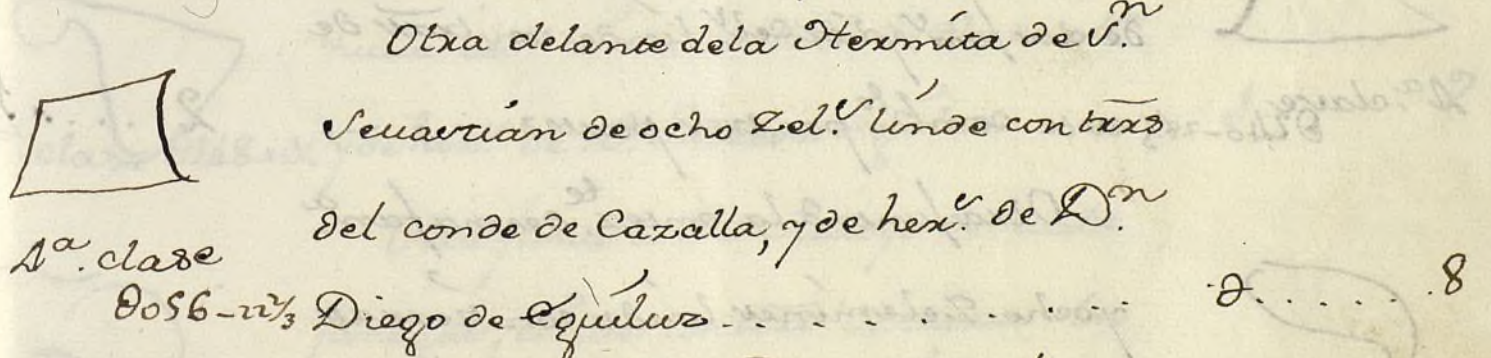 Otra delante dela Hermita de S.ⁿ
Sevastián de ocho Zel.ˢ linde con trrs
del conde de Cazalla, y de her.ˢ de D.ⁿ
Diego de Eguíluz . . . . . . . . . . . 8
1ª. clase